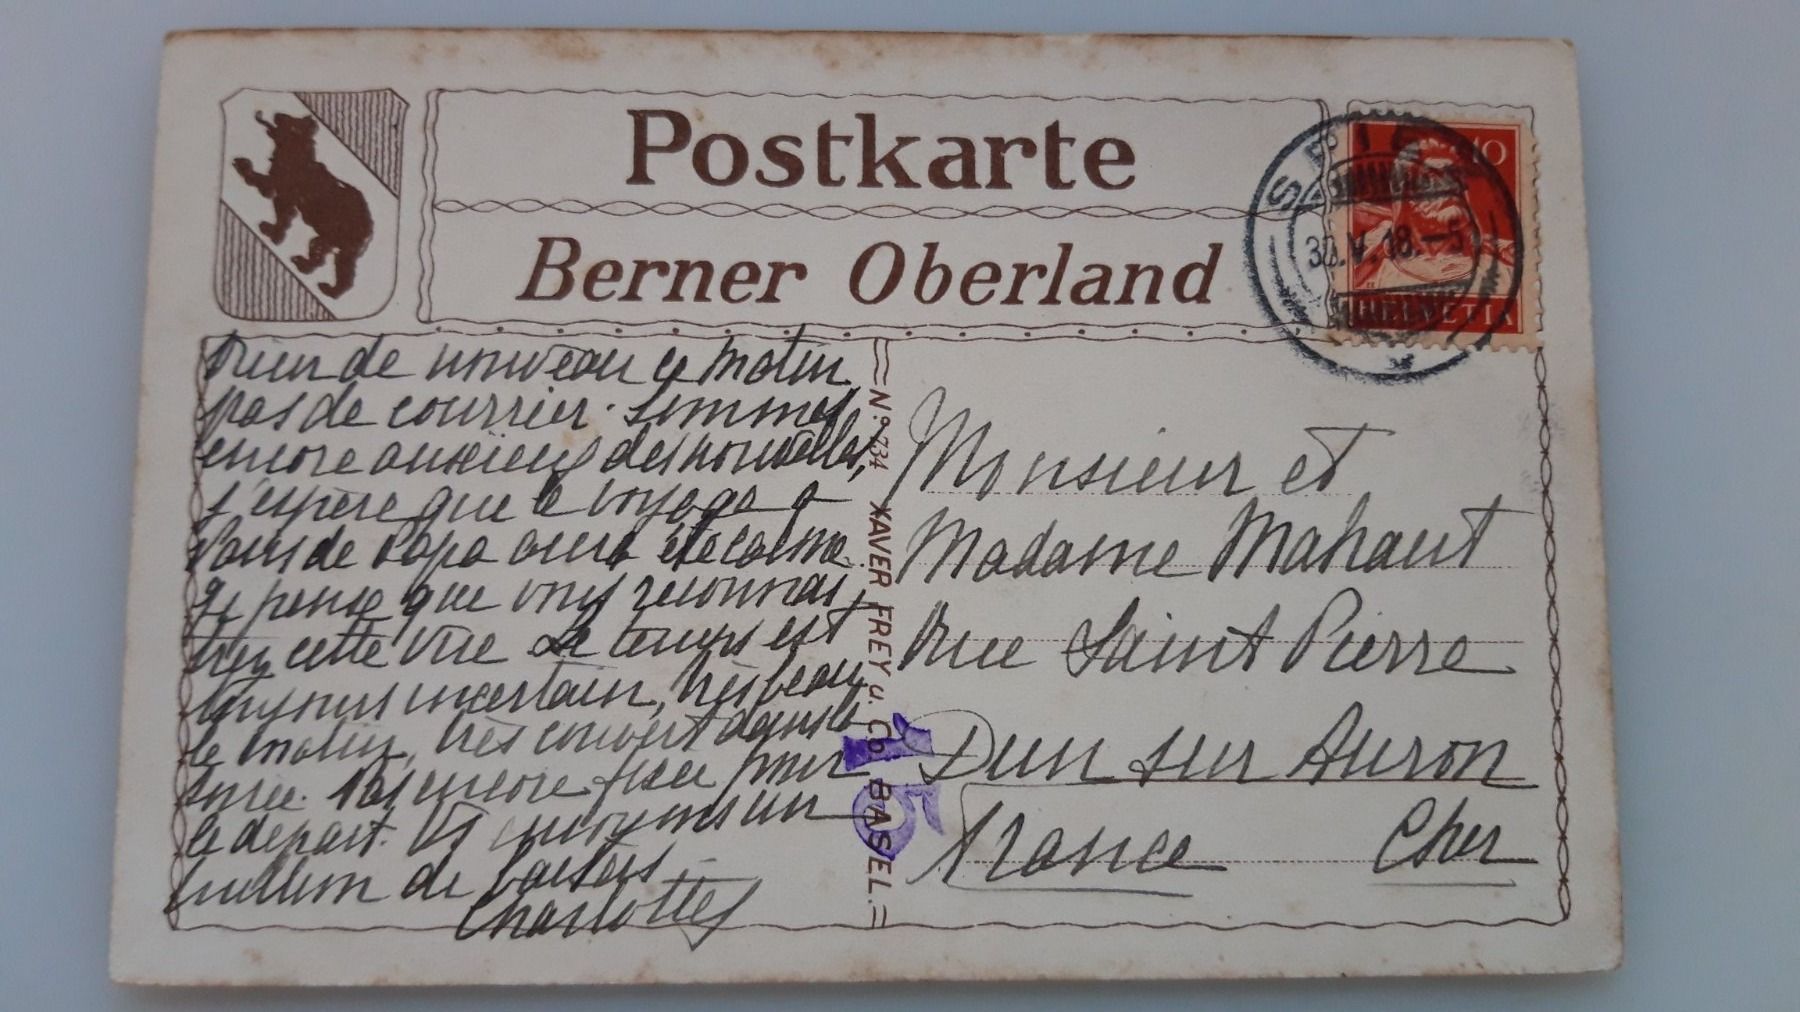 Postkarte
Berner Oberland
SPIEZ
30.V.18.-5
10
HELVETIA
rien de nouveau ce matin
pas de courrier. Sommes
encore anxieux des nouvelles,
j'espère que le voyage à
Paris de Papa aura été calme.
Je pense que vous reconnais
trez cette vue Le temps est
toujours incertain, très beau
le matin, très couvert dans la
soirée. Pas encore fixée pour
le départ. Vs envoyons un
million de baisers
Charlotte
No 734 XAVER FREY u. Co BASEL.
15
Monsieur et
Madame Mahaut
Rue Saint Pierre
Dun sur Auron
France Cher